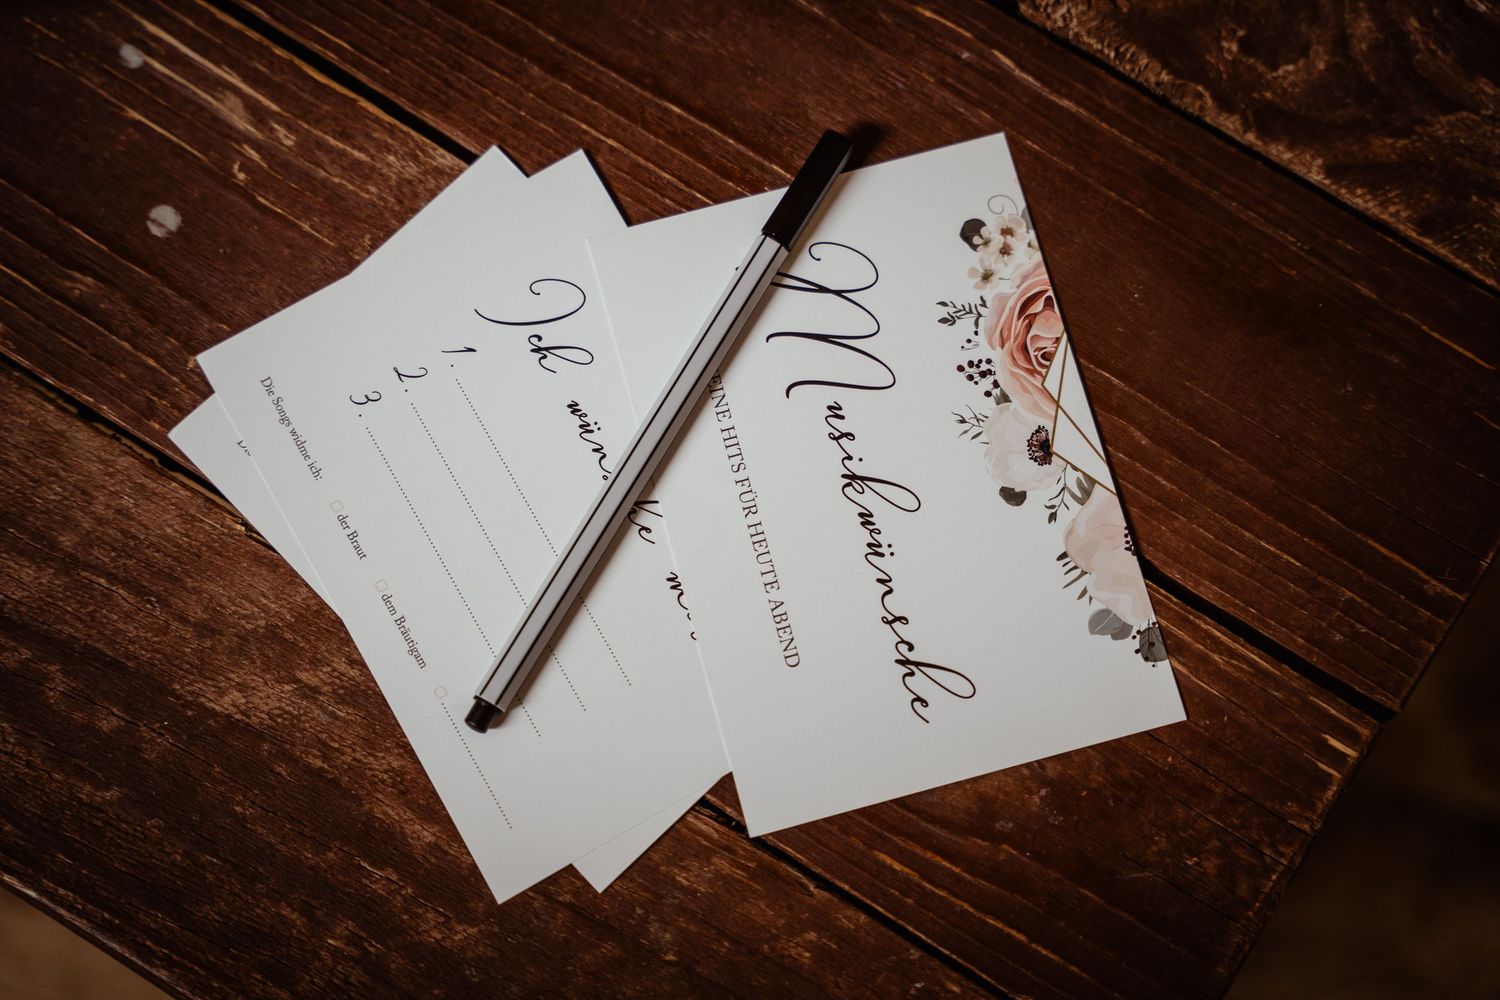 Musikwünsche
EINE HITS FÜR HEUTE ABEND
Ich
1.
2.
3.
Die Songs widme ich:
der Braut
dem Bräutigam